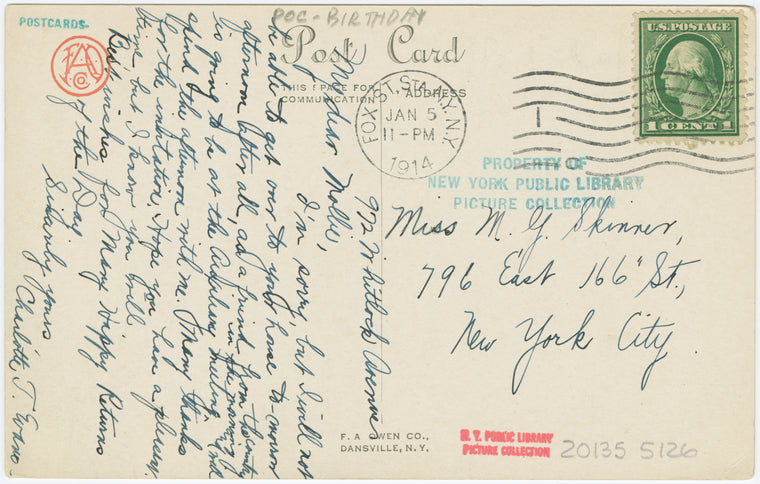 POSTCARDS-
POC-BIRTHDAY
Post Card
THIS SPACE FOR
COMMUNICATION
ADDRESS
FOX ST. STA. N.Y. N.Y.
JAN 5
11-PM
1914
U.S. POSTAGE
1 CENT 1
PROPERTY OF
NEW YORK PUBLIC LIBRARY
PICTURE COLLECTION
Miss M. G. Skinner,
796 East 166" St.,
New York City.
972 Whitlock Avenue
My dear Mollie,
I'm sorry, but I will not
be able to get over to your house to-morrow
afternoon after all, as a friend from the country
is going to be at the meeting in the morning and
spend the afternoon with me. Many thanks
for the invitation. Hope you have a pleasant
time but I know you will.
Best wishes for Many Happy Returns
of the Day
Sincerely yours
Charlotte T. Evans
F. A. OWEN CO.,
DANSVILLE, N.Y.
N. Y. PUBLIC LIBRARY
PICTURE COLLECTION
20135 5126